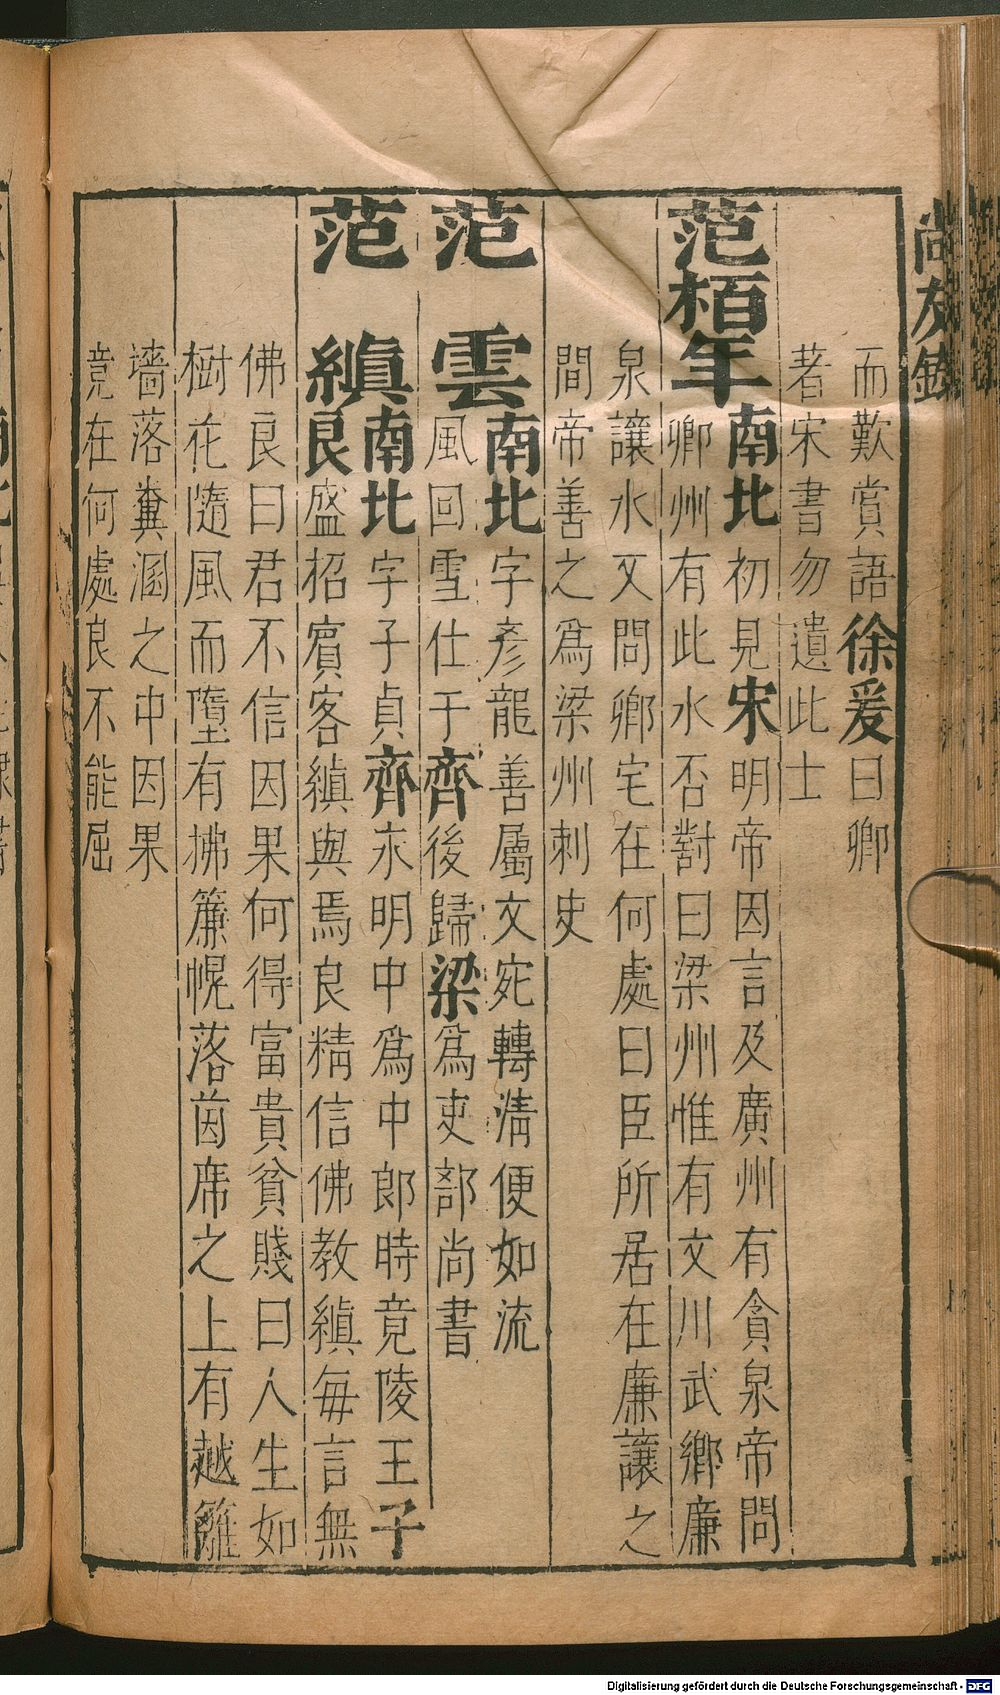 尚友錄
而歎賞語徐爰曰卿
著宋書勿遺此士
范栢年南北初見宋明帝因言及廣州有貪泉帝問
卿州有此水否對曰梁州惟有文川武鄉廉
泉讓水又問鄉宅在何處曰臣所居在廉讓之
間帝善之爲梁州刺史
范雲南北字彥龍善屬文宛轉清便如流
風回雪仕于齊後歸梁爲吏部尚書
范縝南北字子貞齊永明中爲中郎時竟陵王子
良盛招賓客縝與焉良精信佛教縝每言無
佛良曰君不信因果何得富貴貧賤曰人生如
樹花隨風而墮有拂簾幌落茵席之上有越籬
墻落糞溷之中因果
竟在何處良不能屈
Digitalisierung gefördert durch die Deutsche Forschungsgemeinschaft - DFG